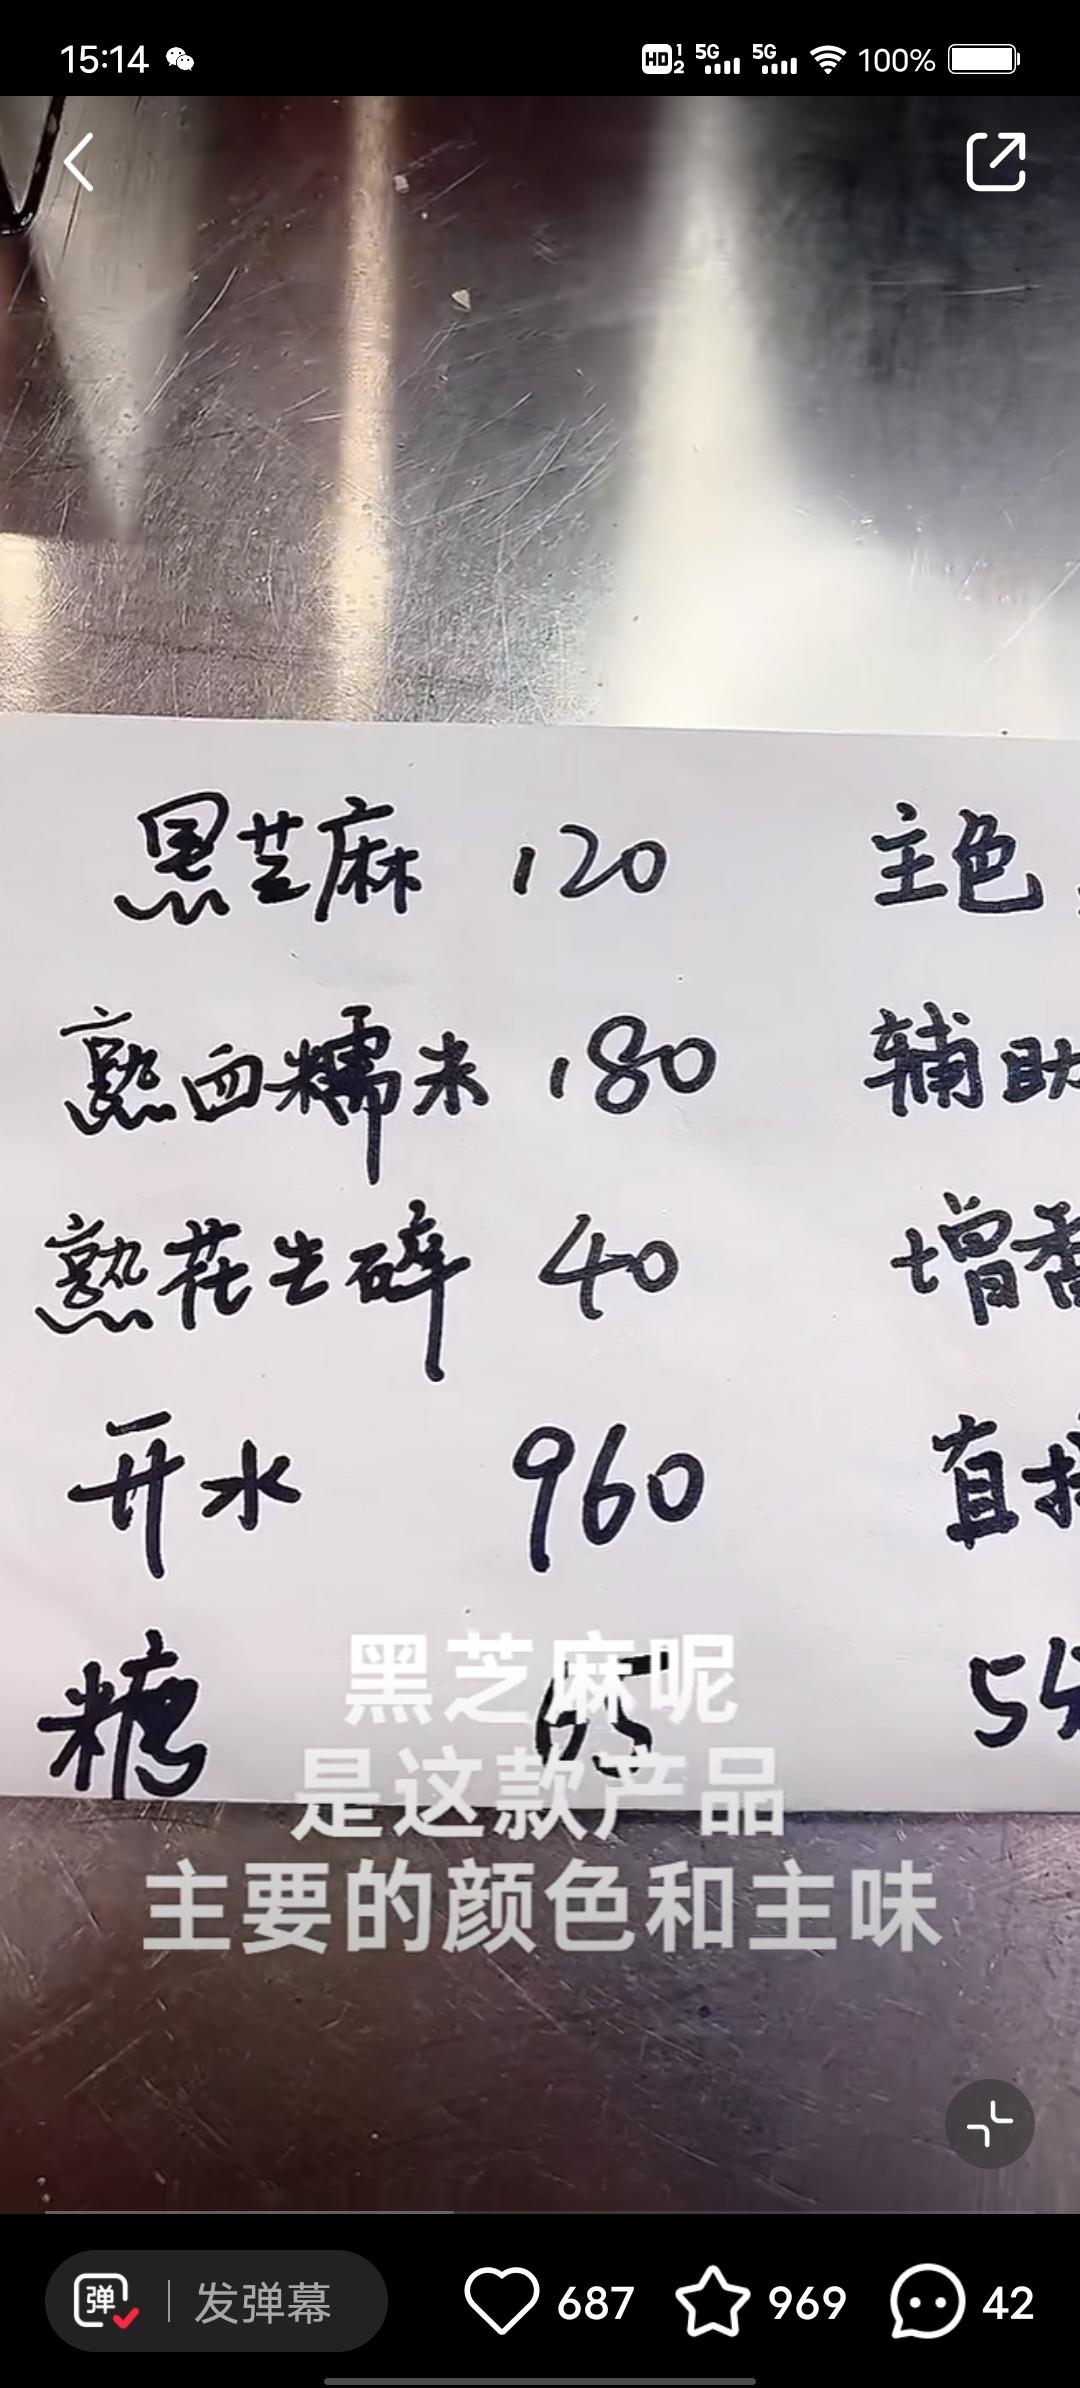 15:14 HD 1 2 5G 5G 100%
黑芝麻 120 主色
熟血糯米 180 辅助
熟花生碎 40 增香
开水 960 直接
糖 65 54
黑芝麻呢
是这款产品
主要的颜色和主味
弹 发弹幕 687 969 42